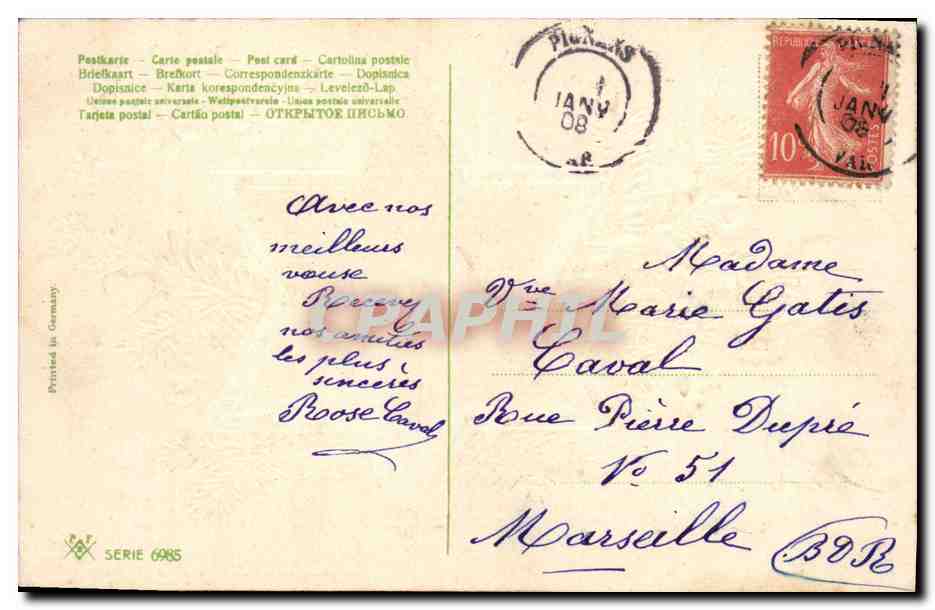 Postkarte – Carte postale – Post card – Cartolina postale
Briefkaart – Brefkort – Correspondenzkarte – Dopisnica
Dopisnice – Karta korespondencyjna – Levelező-Lap
Union postale universelle – Weltpostverein – Union postale universelle
Tarjeta postal – Cartão postal – ОТКРЫТОЕ ПИСЬМО
PIGNANS
1
JANV
08
VAR
REPUBLIQUE
10
POSTES
PIGNANS
1
JANV
08
VAR
Avec nos
meilleurs
vœux
Recevez
nos amitiés
les plus
sincères
Rose Caval
Madame
Vve Marie Gatis
Caval
Rue Pierre Dupré
No 51
Marseille
BDR
CPAPHIL
Printed in Germany
PF
SERIE 6985